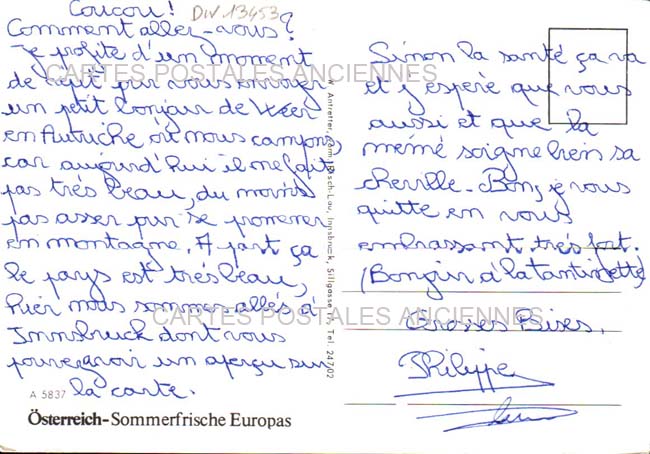 Coucou! DIV 13453
Comment allez-vous?
Je profite d'un moment
de répit pour vous envoyer
un petit bonjour de Weer
en Autriche où nous campons,
car aujourd'hui il ne fait
pas très beau, du moins
pas assez pour se promener
en montagne. A part ça
le pays est très beau,
hier nous sommes allés à
Innsbruck dont vous
pouvez avoir un aperçu sur
la carte.
A 5837
Österreich-Sommerfrische Europas
W. Antretter, Innsbruck, Sillgasse Tel. 247/02
Sinon la santé ça va
et j'espère que vous
aussi et que la
mémé soigne bien sa
cheville. Bon, je vous
quitte en vous
embrassant très fort.
(Bonjour à la tantinette)
Grosses Bises.
Philippe
CARTES POSTALES ANCIENNES
CARTES POSTALES ANCIENNES